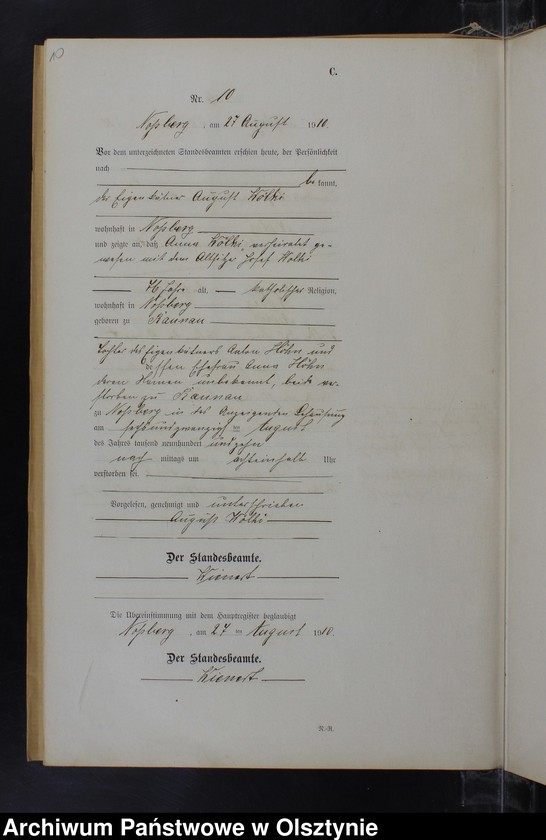 10
C.
Nr. 10
Noßberg, am 27 August 1910.
Vor dem unterzeichneten Standesbeamten erschien heute, der Persönlichkeit
nach
be kannt,
der Eigenkätner August Wölki
wohnhaft in Noßberg
und zeigte an, daß Anna Wölki, verheiratet ge-
wesen mit dem Altsitzer Josef Wölki
76 Jahre alt, katholischer Religion,
wohnhaft in Noßberg
geboren zu Raunau
Tochter des Eigenkätners Anton Höhn und
dessen Ehefrau Anna Höhn
deren Namen unbekannt, beide ver-
storben zu Raunau
zu Noßberg in des Anzeigenden Behausung
am sechsundzwanzigsten August
des Jahres tausend neunhundert undzehn
nach mittags um achteinhalb Uhr
verstorben sei.
Vorgelesen, genehmigt und unterschrieben
August Wölki
Der Standesbeamte.
Kienert
Die Übereinstimmung mit dem Hauptregister beglaubigt
Noßberg, am 27 ten August 1910.
Der Standesbeamte.
Kienert
N.-R.
Archiwum Państwowe w Olsztynie